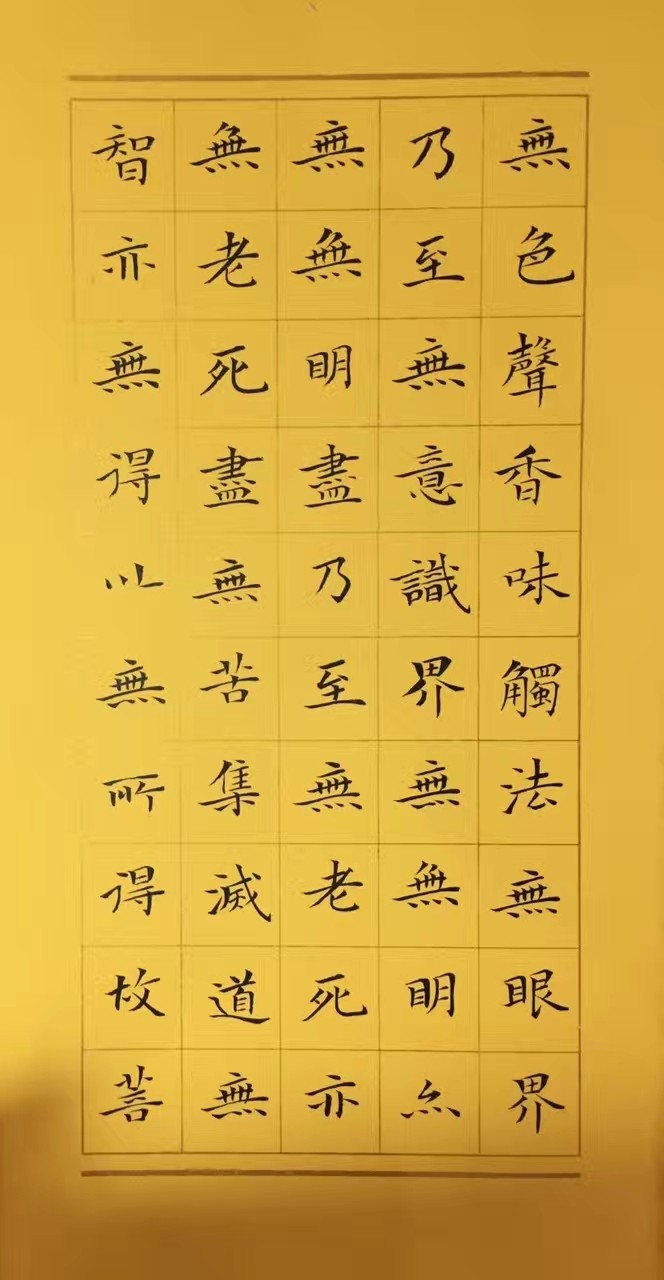 無色聲香味觸法無眼界
乃至無意識界無無明亦
無無明盡乃至無老死亦
無老死盡無苦集滅道無
智亦無得以無所得故菩